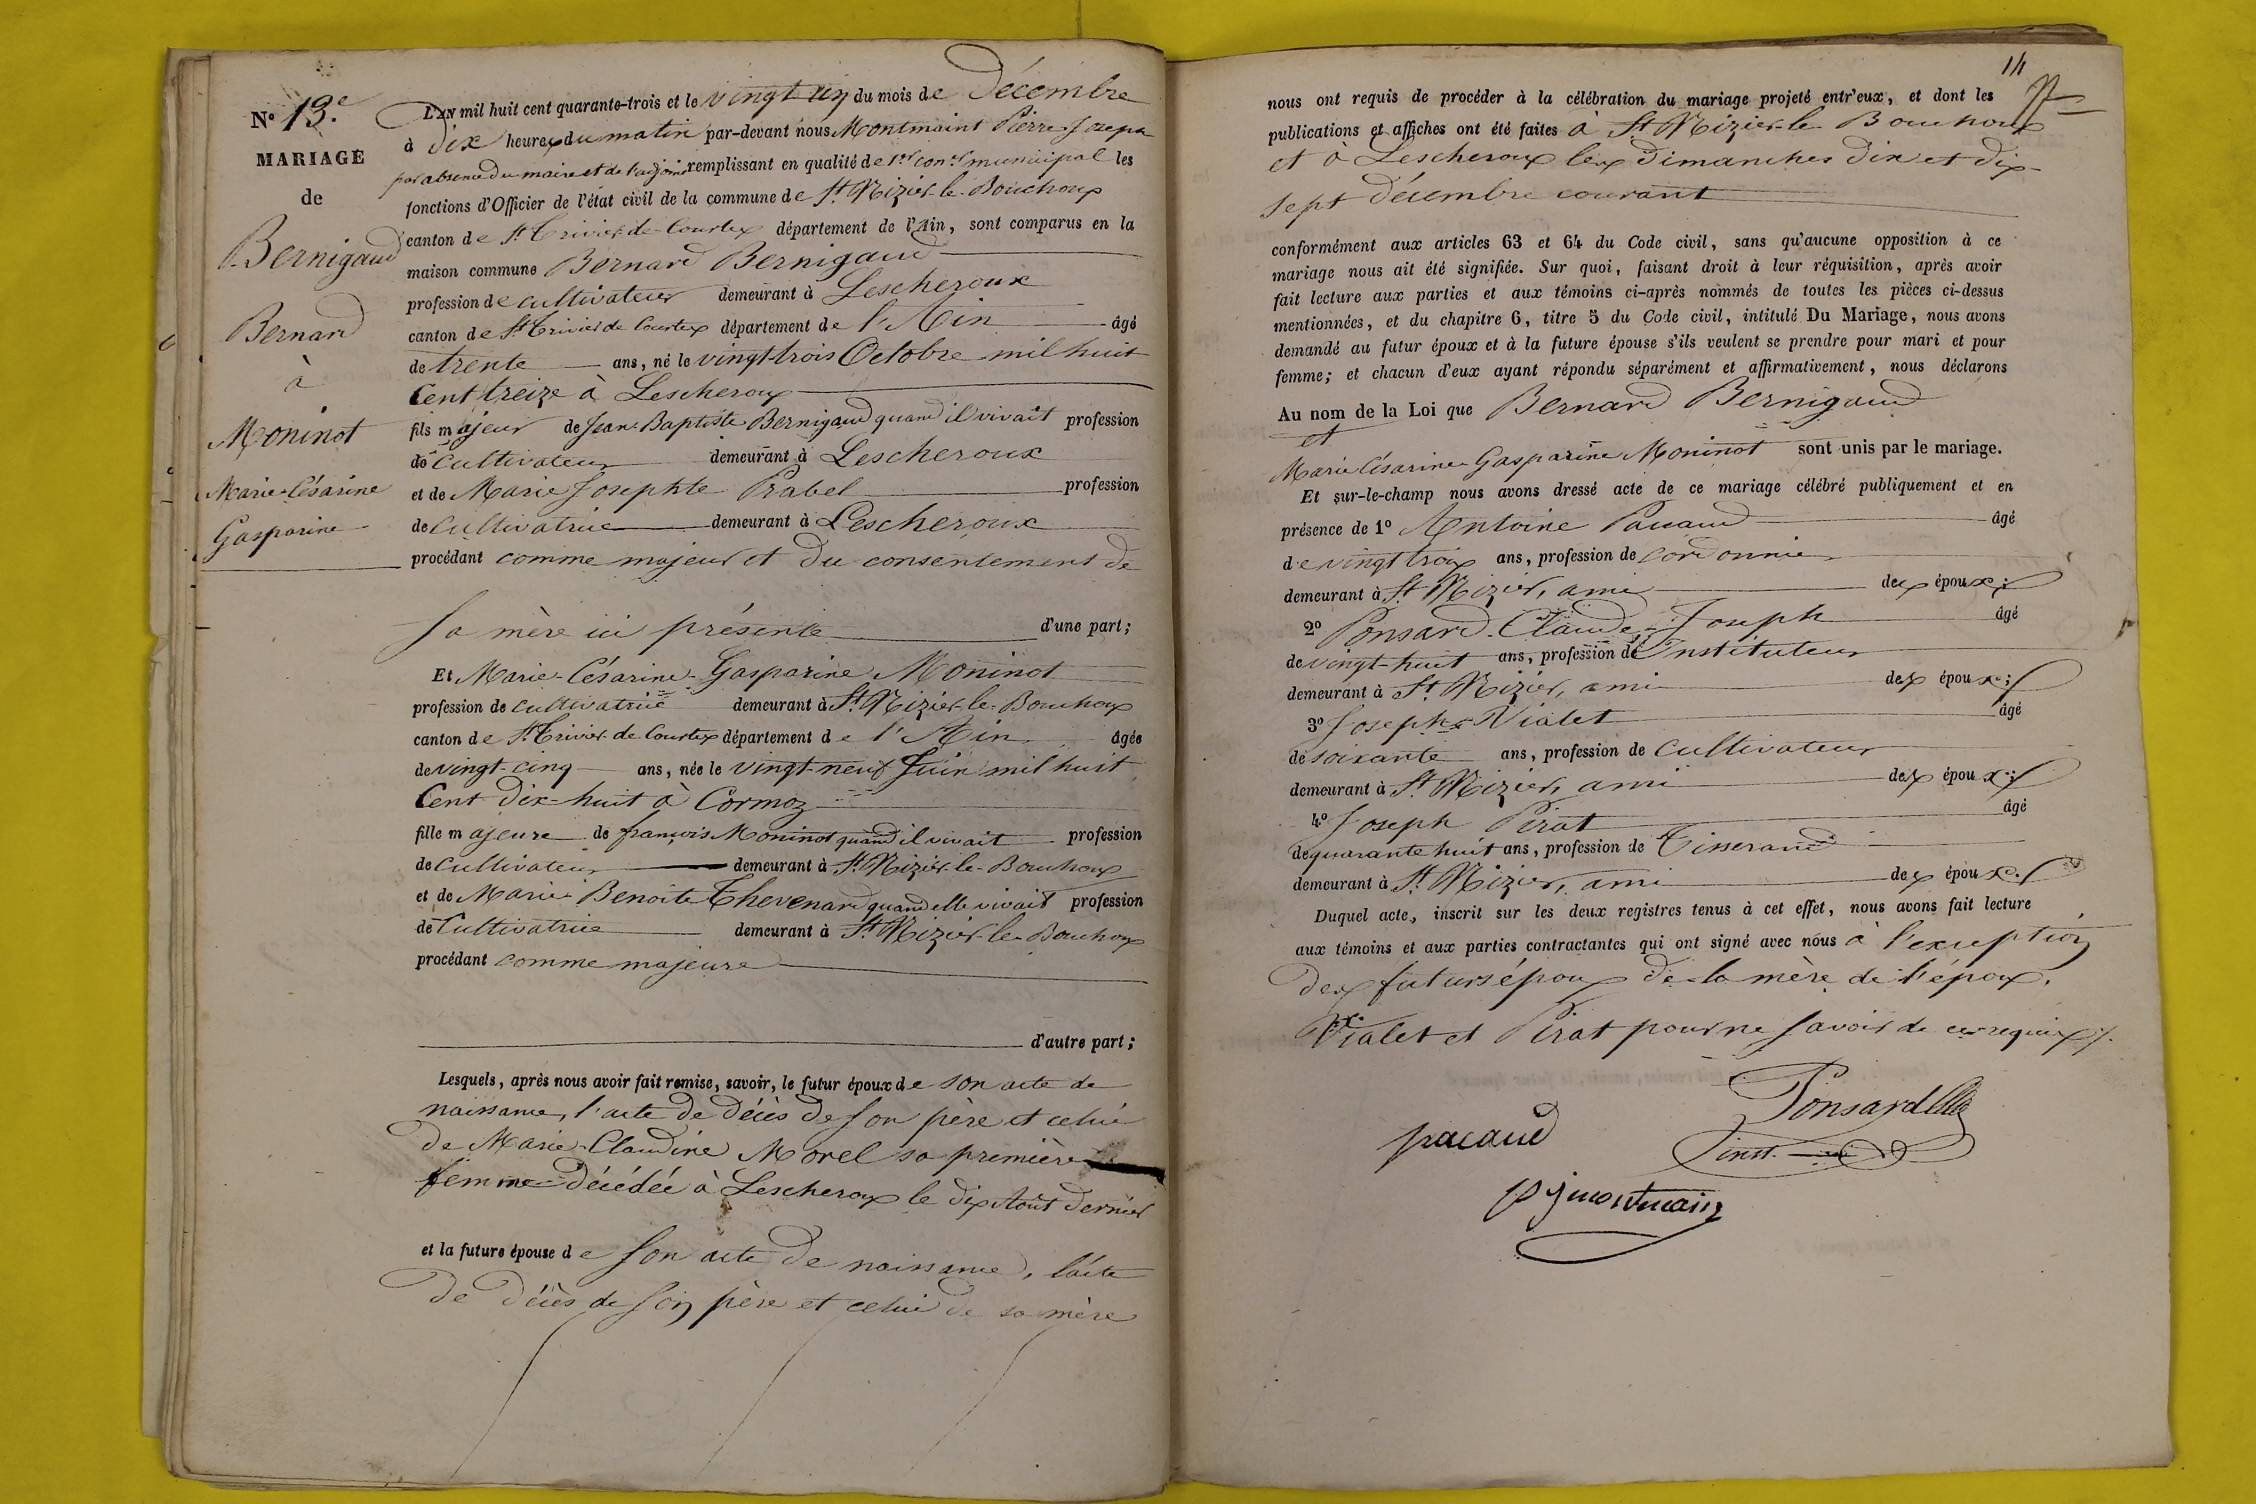 N° 13.e
MARIAGE
de
Bernigaud
Bernard
à
Moninot
Marie-Césarine
Gasparine
L'AN mil huit cent quarante-trois et le vingt un du mois de Décembre
à dix heures du matin par-devant nous Montmaint Pierre Joseph
par absence du maire et de l'adjoint remplissant en qualité de 1er conser municipal les
fonctions d'Officier de l'état civil de la commune de St Nizier-le-Bouchoux
canton de St Trivier-de-Courtex département de l'Ain, sont comparus en la
maison commune Bernard Bernigaud
profession de cultivateur demeurant à Lescheroux
canton de St Trivier de Courtex département de l'Ain âgé
de trente ans, né le vingt-trois Octobre mil huit
Cent treize à Lescheroux
fils majeur de Jean-Baptiste Bernigaud quand il vivait profession
de Cultivateur demeurant à Lescheroux
et de Marie Josephte Prabel profession
de Cultivatrice demeurant à Lescheroux
procédant comme majeur et du consentement de
sa mère ici présente d'une part;
Et Marie-Césarine-Gasparine Moninot
profession de cultivatrice demeurant à St Nizier-le-Bouchoux
canton de St Trivier de Courtex département de l'Ain âgée
de vingt-cinq ans, née le vingt-neuf Juin mil huit
Cent dix-huit à Cormoz
fille majeure de françois Moninot quand il vivait profession
de cultivateur demeurant à St Nizier-le-Bouchoux
et de Marie Benoite Thevenard quand elle vivait profession
de Cultivatrice demeurant à St Nizier-le-Bouchoux
procédant comme majeure
d'autre part;
Lesquels, après nous avoir fait remise, savoir, le futur époux de son acte de
naissance, l'acte de décès de son père et celui
de Marie-Claudine Morel sa première
femme décédée à Lescheroux le dix Août dernier
et la future épouse de son acte de naissance, l'acte
de décès de son père et celui de sa mère
14
nous ont requis de procéder à la célébration du mariage projeté entr'eux, et dont les
publications et affiches ont été faites à St Nizier-le Bouchoux
et à Lescheroux les dimanches dix et dix-
sept décembre courant
conformément aux articles 63 et 64 du Code civil, sans qu'aucune opposition à ce
mariage nous ait été signifiée. Sur quoi, faisant droit à leur réquisition, après avoir
fait lecture aux parties et aux témoins ci-après nommés de toutes les pièces ci-dessus
mentionnées, et du chapitre 6, titre 5 du Code civil, intitulé Du Mariage, nous avons
demandé au futur époux et à la future épouse s'ils veulent se prendre pour mari et pour
femme; et chacun d'eux ayant répondu séparément et affirmativement, nous déclarons
Au nom de la Loi que Bernard Bernigaud
et
Marie Césarine Gasparine Moninot sont unis par le mariage.
Et sur-le-champ nous avons dressé acte de ce mariage célébré publiquement et en
présence de 1° Antoine Pacaud âgé
de vingt trois ans, profession de cordonnier
demeurant à St Nizier, ami des époux;
2° Ponsard-Claude-Joseph âgé
de vingt-huit ans, profession de Instituteur
demeurant à St Nizier, ami des époux;
3° Joseph Vialet âgé
de soixante ans, profession de cultivateur
demeurant à St Nizier, ami des époux;
4° Joseph Pirat âgé
de quarante huit ans, profession de Tisserand
demeurant à St Nizier, ami des époux.
Duquel acte, inscrit sur les deux registres tenus à cet effet, nous avons fait lecture
aux témoins et aux parties contractantes qui ont signé avec nous à l'exception
des futurs époux de la mère de l'époux,
Vialet et Pirat pour ne savoir de ce requis
Ponsard
pacaud
inst.
pjmontmain